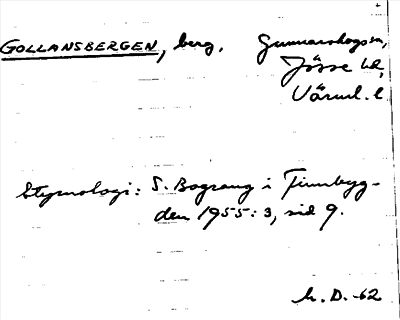 GOLLANSBERGEN, berg. Gunnarskogs sn,
Jösse hd,
Värml. l.
Etymologi: S. Bograng i Finnbyg-
den 1955: 3, sid 9.
h. D. -62